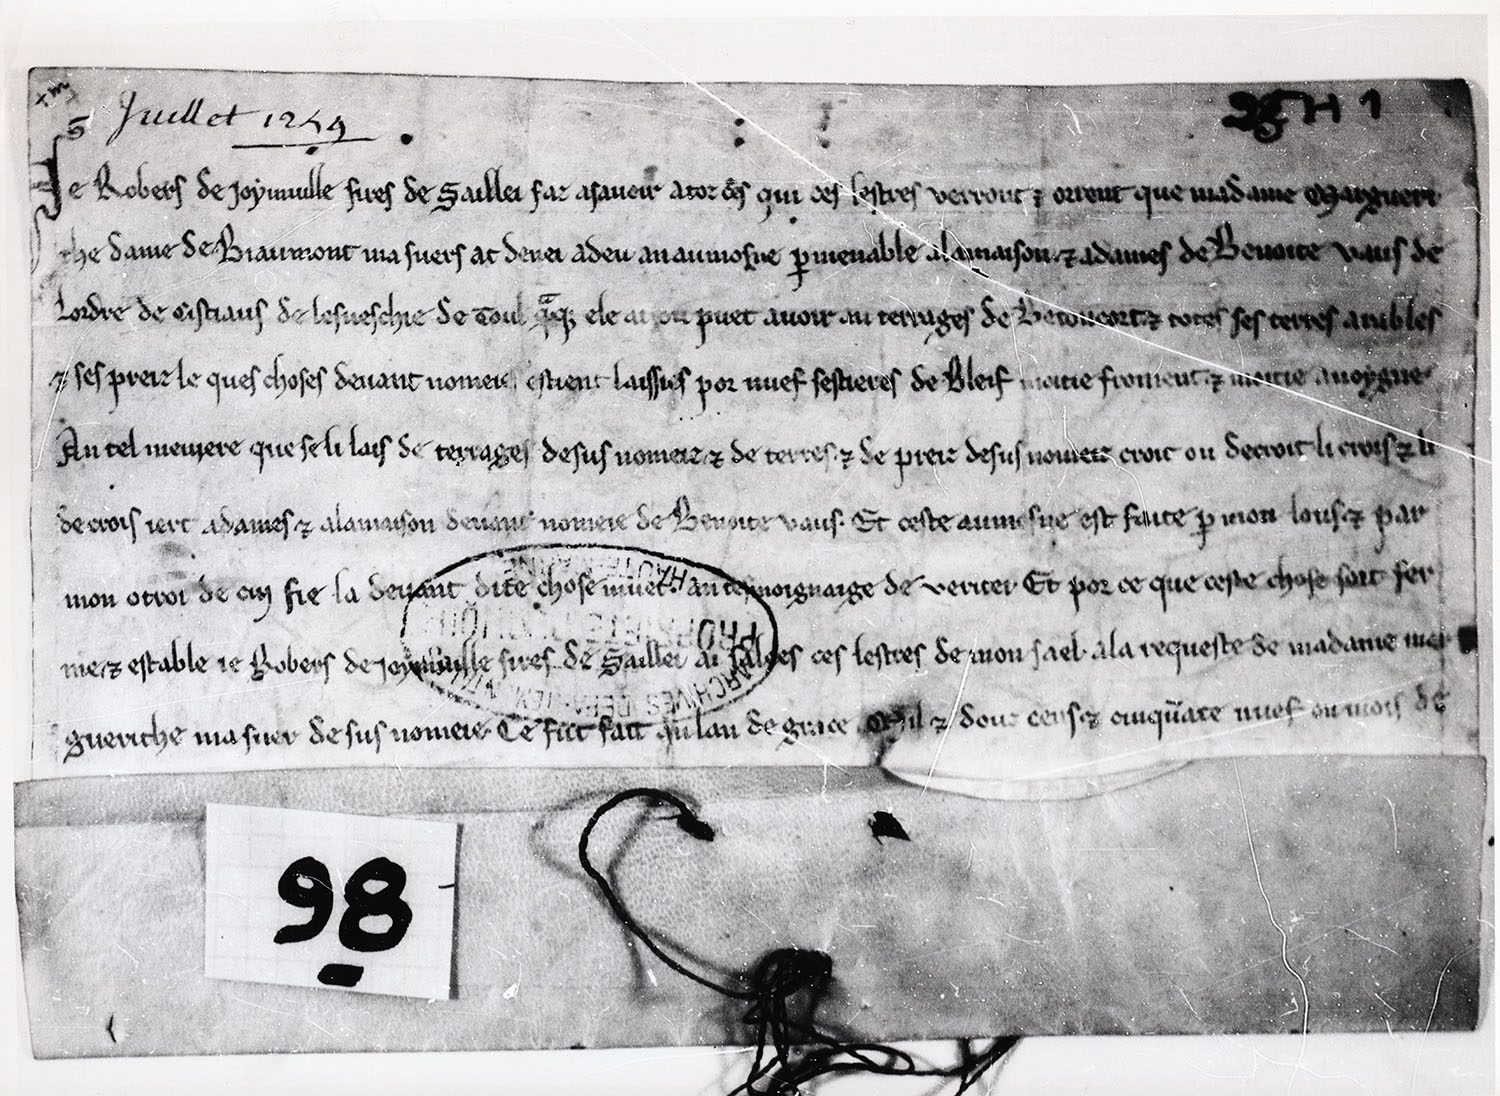 Juillet 1259
98 H 1
Je Robers de Joyinuille sires de Saillei faz asauoir a toz ces̄ qui ces lestres verront ⁊ orront que madame Marguerι
the dame de Biaumont ma suers at donei a deu an aumosne p̄menable a la maison ⁊ a dames de Benoite vaus de
lordre de Cistiaus de lesueschie de Toul q̄nq; ele ai ou puet auoir au terrages de Betoncort ⁊ totes ses terres arables
⁊ ses preiz le ques choses deuant nomeies estient laissies por nuef sestieres de Bleif moitie froment ⁊ moitie auoygne
An tel meniere que se li lais de terrages desus nomeiz ⁊ de terres ⁊ de preiz desus nomeiz croit ou decroit li crois ⁊ li
decrois iert a dames ⁊ a la maison deuant nomeie de Benoite vaus. Et ceste aumosne est faite p̄ mon lous ⁊ par
mon otroi de cuj fie la deuant dite chose muet. an tesmoignaige de veritei. Et por ce que ceste chose soit fer
me ⁊ estable ie Robers de Joyinuille sires de Saillei ai saleies ces lestres de mon sael. a la requeste de madame mar
guerithe ma suer desus nomeie. Ce fut fait qu lan de grace Mil ⁊ dous cens ⁊ cinquāte nuef ou mois de
HAUTE-MARNE
PROPRIÉTÉ PUBLIQUE
ARCHIVES DÉPARTEMENTALES
98